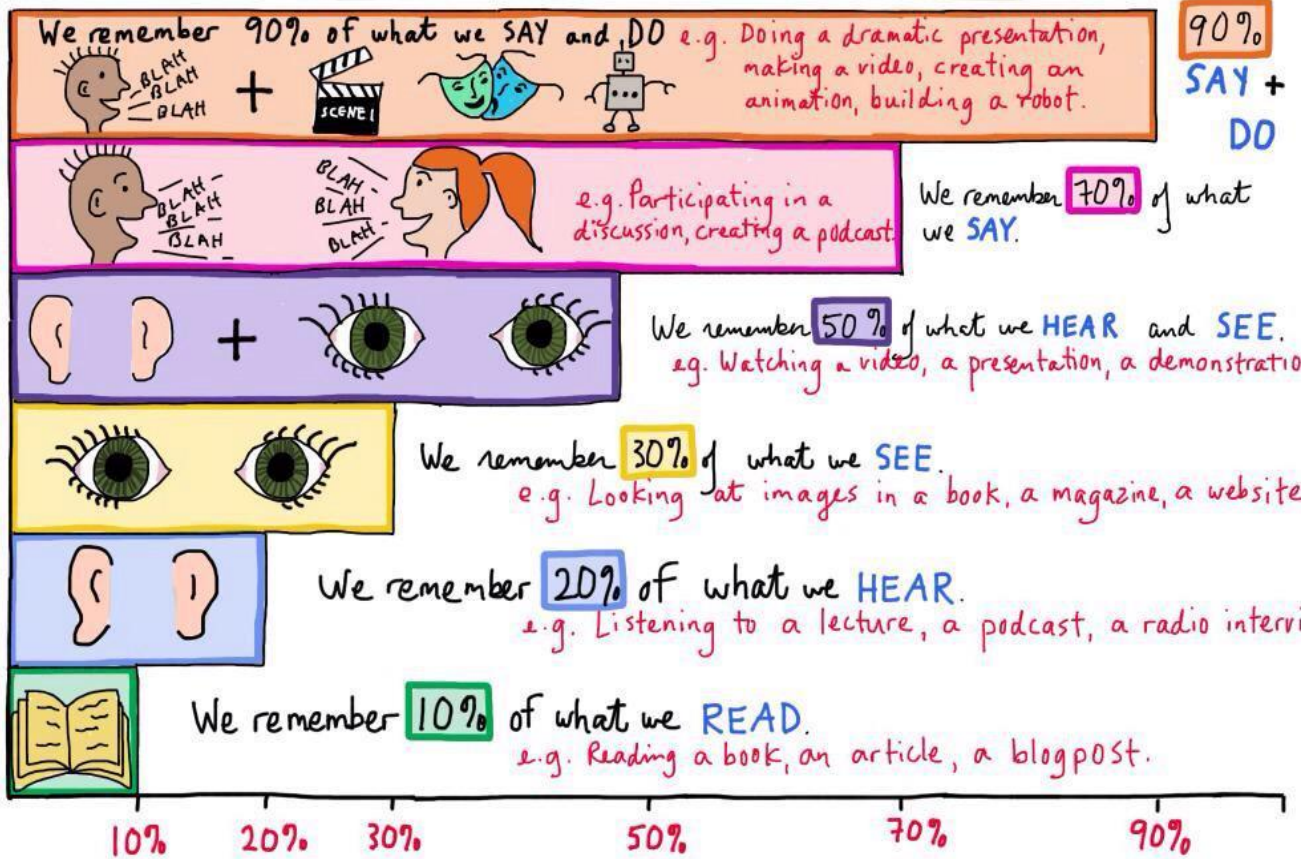 We remember 90% of what we SAY and DO e.g. Doing a dramatic presentation,
making a video, creating an
animation, building a robot.
BLAH
BLAH
BLAH
+
SCENE 1
90%
SAY +
DO
BLAH
BLAH
BLAH
BLAH
BLAH
BLAH
e.g. Participating in a
discussion, creating a podcast.
We remember 70% of what
we SAY.
+
We remember 50% of what we HEAR and SEE.
eg. Watching a video, a presentation, a demonstratio
We remember 30% of what we SEE.
e.g. Looking at images in a book, a magazine, a website
We remember 20% of what we HEAR.
e.g. Listening to a lecture, a podcast, a radio intervi
We remember 10% of what we READ.
e.g. Reading a book, an article, a blogpost.
10% 20% 30% 50% 70% 90%